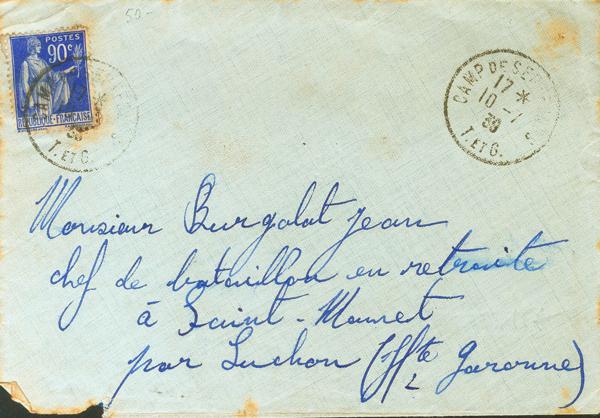 50-
POSTES
90c
RÉPUBLIQUE-FRANÇAISE
T. ET G.
CAMP DE
17 *
10 - 1
39
T. ET G.
Monsieur Burgalat Jean
chef de bataillon en retraite
à Saint-Mamet
par Luchon (Hte Garonne)